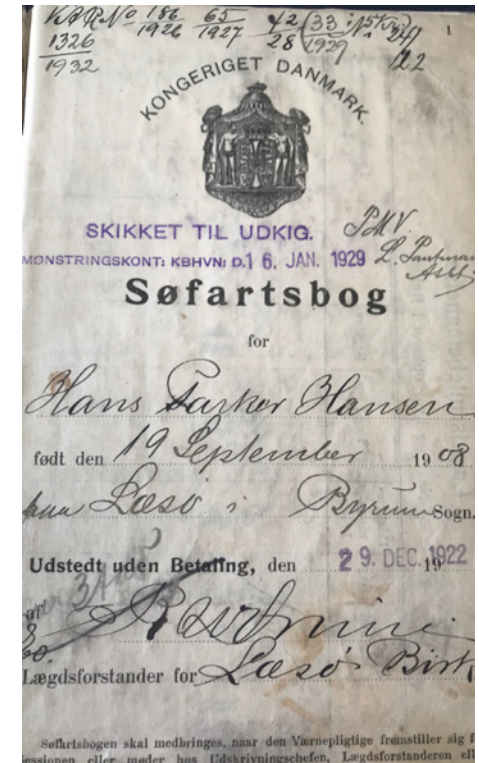 KAR No 186/1926 65/1927 42/28 (33/1929
1326/1932
1
KONGERIGET DANMARK.
SKIKKET TIL UDKIG.
MØNSTRINGSKONT: KBHVN: D. 16. JAN. 1929
Søfartsbog
for
Hans Parker Hansen
født den 19 September 1908
paa Læsø i Byrum Sogn.
Udstedt uden Betaling, den 29. DEC. 1922
af
Lægdsforstander for Læsø Birk
Søfartsbogen skal medbringes, naar den Værnepligtige fremstiller sig f
essionen eller møder hos Udskrivningschefen, Lægdsforstanderen ell